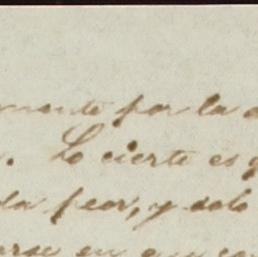 mente por la
. Lo cierto es
la peor, y solo
arse en